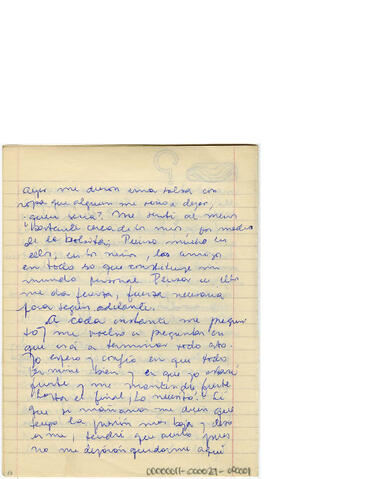 Ayer me dieron una bolsa con
ropa que alguien me vino a dejar,
quien seria? Me sentí al menos
bastante cerca de los míos por medio
de la bolsita; Pienso mucho en
ellos, en los niños, los amigos
en todo lo que constituye mi
mundo personal. Pensar en ellos
me da fuerza, fuerza necesaria
para seguir adelante.
A cada instante me pregun
to y me vuelvo a preguntar en
que irá a terminar todo esto.
Yo espero y confío en que todo
termine bien y en que yo estaré
fuerte y me mantendré fuerte
hasta el final, ¡Lo necesito! Sé
que si mañana me dicen que
tengo la presión mas baja y
me, tendré que pues
no me dejarán quedarme aquí
00000011-000029-00001